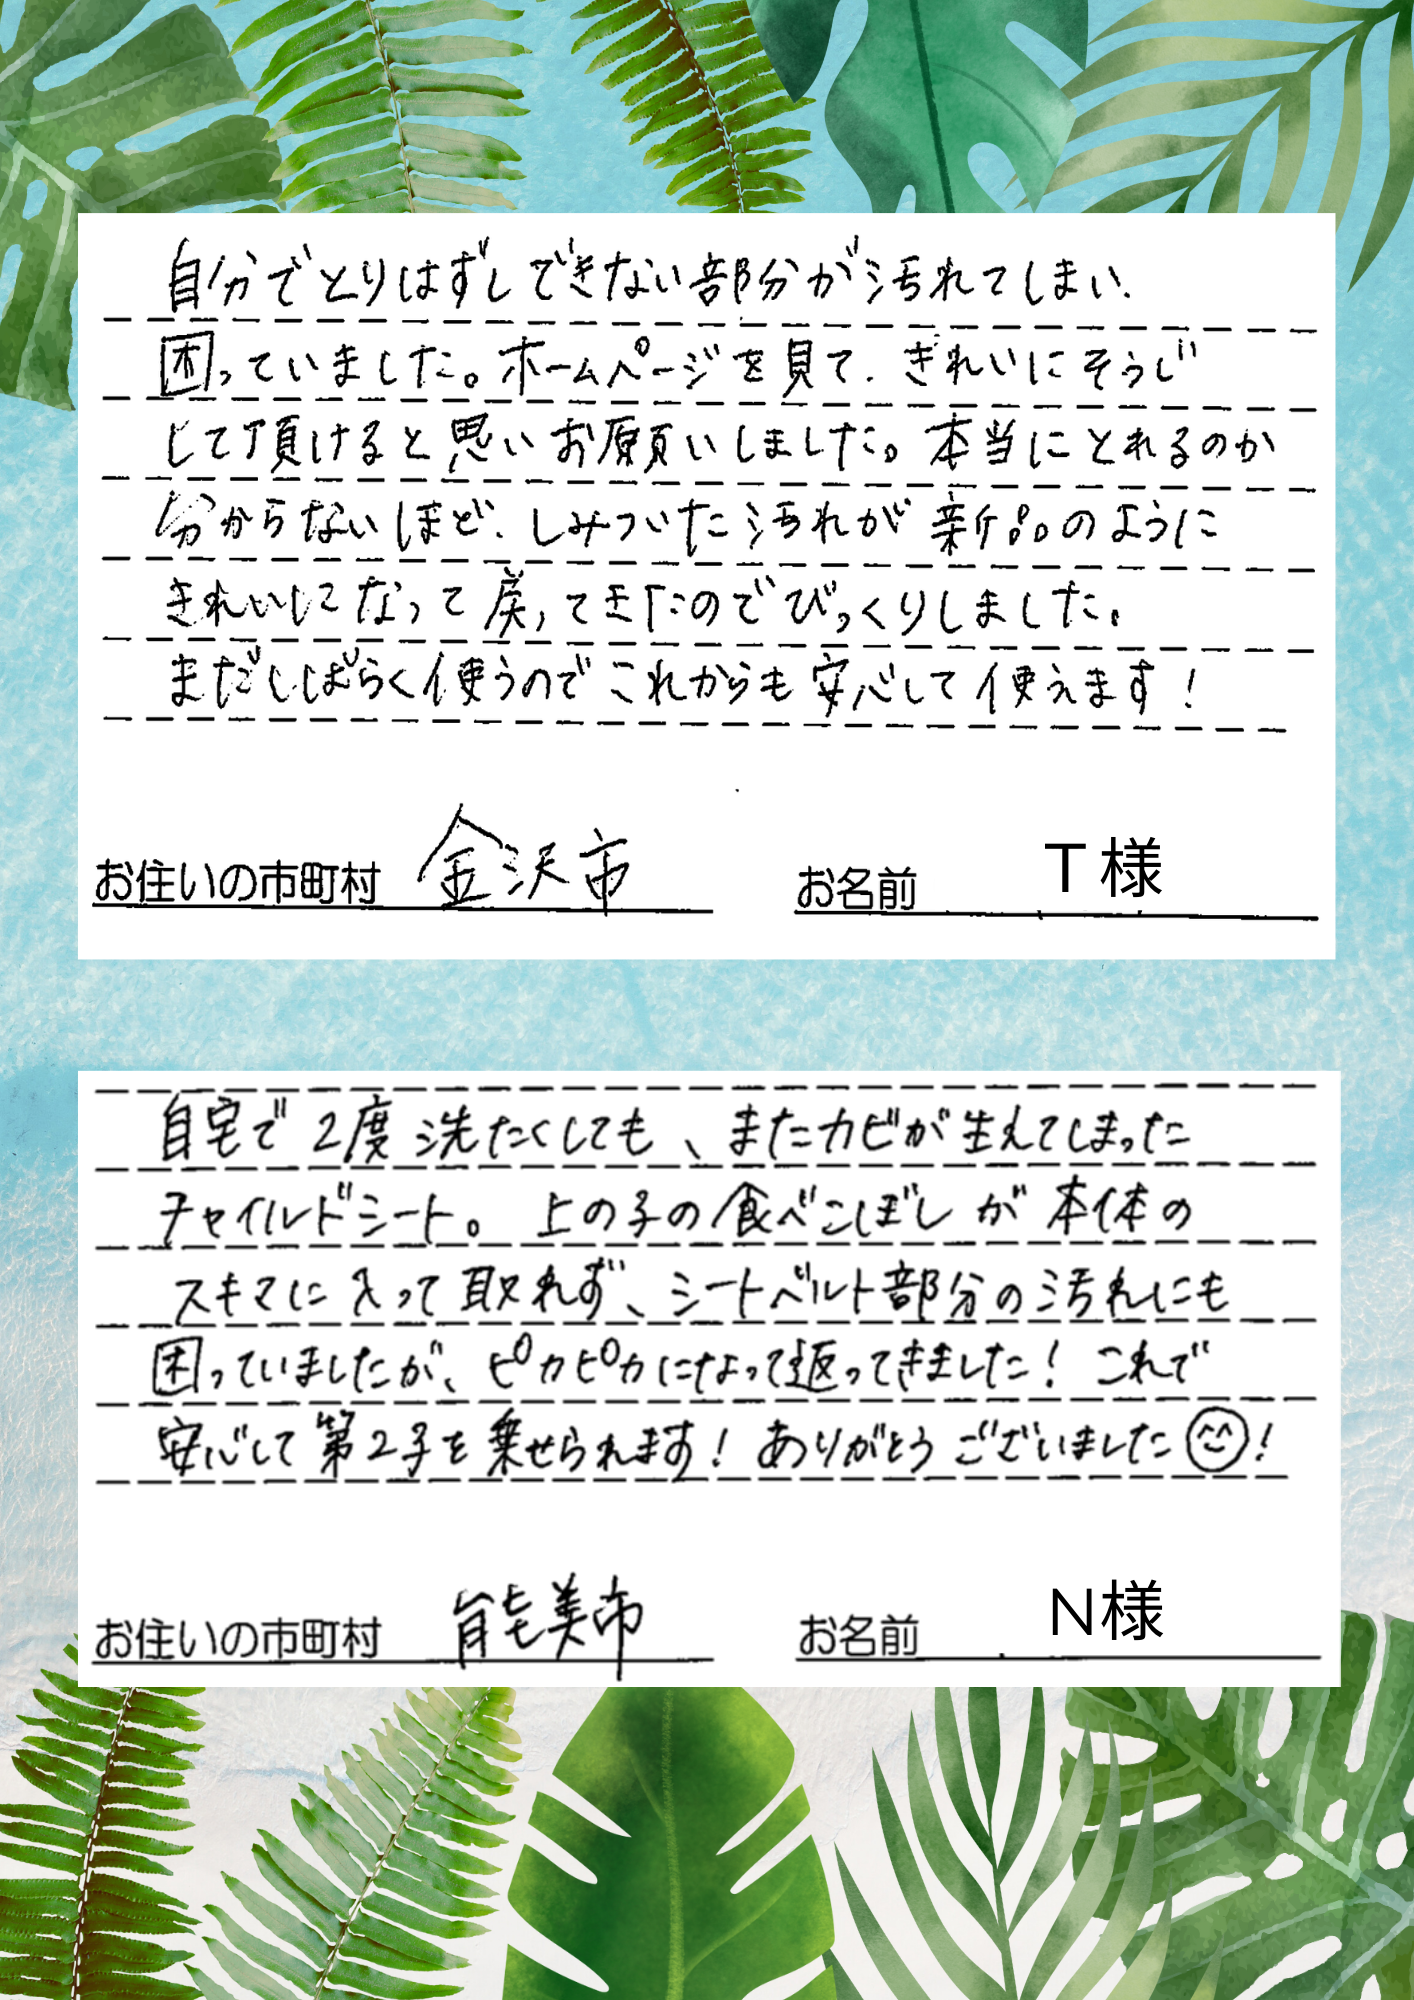 自分でとりはずしできない部分が汚れてしまい、
困っていました。ホームページを見て、きれいにそうじ
して頂けると思いお願いしました。本当にとれるのか
分からないほど、しみついた汚れが新品のように
きれいになって戻ってきたのでびっくりしました。
まだしばらく使うのでこれからも安心して使えます！
お住いの市町村 金沢市 お名前 T様
自宅で2度洗たくしても、またカビが生えてしまった
チャイルドシート。上の子の食べこぼしが本体の
スキマに入って取れず、シートベルト部分の汚れにも
困っていましたが、ピカピカになって返ってきました！これで
安心して第2子を乗せられます！ありがとうございました😊！
お住いの市町村 能美市 お名前 N様